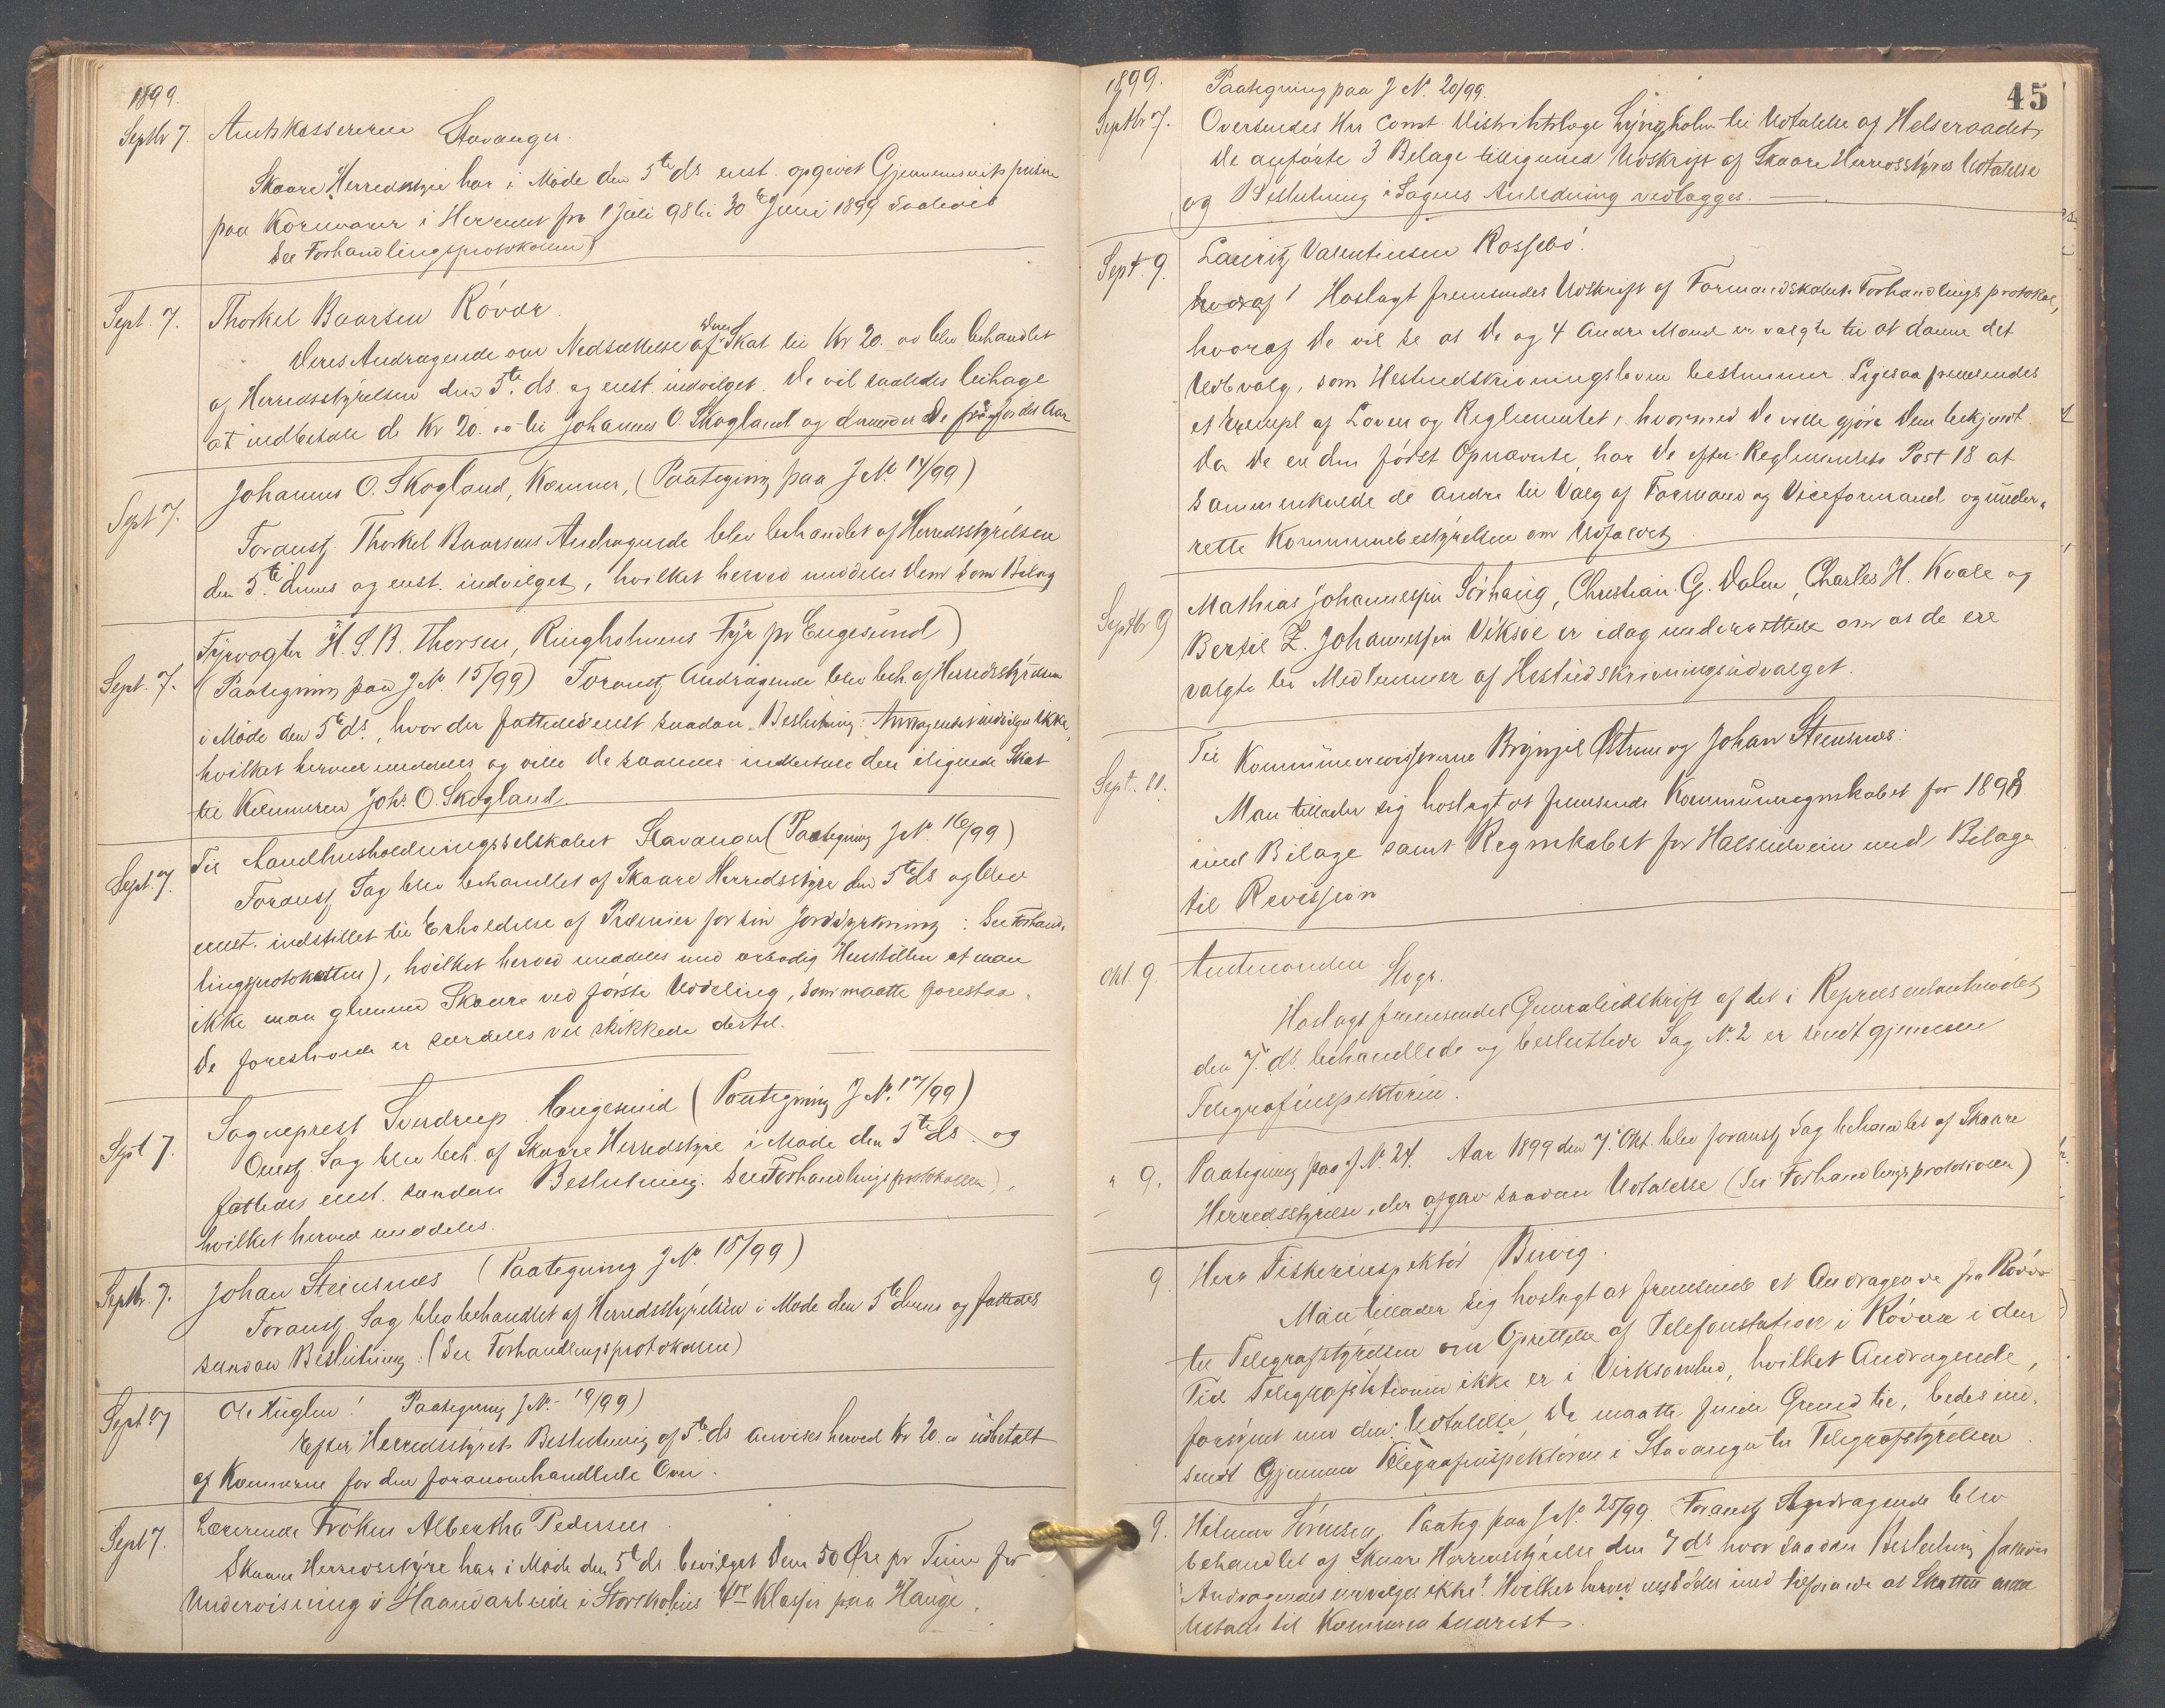 1899.
Septbr 7. Amtskassereren Stavanger.
Skaare Herredsstyre har i Møde den 5te ds enst. opgivet Gjennemsnitsprisen
paa Kornvarer i Herredet fra 1 Juli 98 til 30te Juni 1899 saaledes
See Forhandlingsprotokollen)
Sept. 7. Thorkel Baarsen Røvær.
Deres Andragende om Nedsættelse af Deres Skat til Kr 20.00 blev behandlet
af Herredsstyrelsen den 5te ds. og enst. indvilget. De vil saaledes behage
at indbetale de Kr 20.00 til Johannes O. Skogland og dermed er De fri for det Aar
Sept 7. Johannes O. Skogland, Kæmner, (Paategning paa J No. 14/99)
Foranst. Thorkel Baarsens Andragende blev behandlet af Herredsstyrelsen
den 5te dennes og enst. indvilget, hvilket herved meddeles Dem som Bilag
Sept. 7. Fyrvogter H. S. B. Thorsen, Ringholmens Fyr pr Engesund)
(Paategning paa J No. 15/99) Foranst Andragende blev beh. af Herredsstyrelsen
i Møde den 5te ds., hvor der fattedes enst saadan Beslutning: Andragendet indvilges ikke,
hvilket herved meddeles og ville De saaledes indbetale den ilignede Skat
til Kæmneren Johs. O. Skogland.
Sept. 7. Til Landhusholdningsselskabet Stavanger (Paategning J No. 16/99)
Foranst Sag blev behandlet af Skaare Herredsstyre den 5te ds og blev
enst. indstillet til Erholdelse af Præmier for sin Jorddyrkning: See Forhand-
lingsprotokollen), hvilket herved meddeles med ærbødig Henstillen at man
ikke maa glemme Skaare ved første Uddeling, som maatte forestaa.
De foreslaaede er særdeles vel skikkede dertil.
Sept 7. Sogneprest Svendrup Haugesund (Paategning J No. 17/99)
Omst. Sag blev beh. af Skaare Herredsstyre i Møde den 5te ds. og
fattedes enst. saadan Beslutning. See Forhandlingsprotokollen),
hvilket herved meddeles.
Septbr. 7. Johan Steinsnes (Paategning J No. 18/99)
Foranst. Sag blev behandlet af Herredsstyrelsen i Møde den 5te dennes og fattedes
saadan Beslutning: (See Forhandlingsprotokollen)
Sept 7 Ole Kuglen! Paategning J No. 19/99)
Efter Herredsstyrets Beslutning af 5te ds anvises herved Kr 20.00 udbetalt
af Kæmneren for den foranomhandlede Ovn.
Sept 7. Lærerinde Frøken Albertha Pedersen.
Skaare Herredsstyre har i Møde den 5te ds bevilget Dem 50 Øre pr Time for
Undervisning i Haandarbeide i Storskolens 4de Klasse paa Hauge.
45
1899. Paategning paa J No. 20/99.
Septbr 7. Oversendes Hrr Const. Distriktslæge Lyngholm til Udtalelse af Helseraadet,
De anførte 3 Bilage tilligemed Udskrift af Skaare Herredsstyres Udtalelse
og Beslutning i Sagens Anledning vedlægges.
Sept. 9. Lauritz Valentinsen Rossebø!
hvoraf! Hoslagt fremsendes Udskrift af Formandskabets Forhandlingsprotokol,
hvoraf De vil se at De og 4 Andre Mænd er valgte til at danne det
Udvalg, som Hesteudskrivningsloven bestemmer. Ligesaa fremsendes
et Exempl af Loven og Reglementet, hvormed De ville gjøre Dem bekjendt
Da De er den først Opnævnte, har De efter Reglementets Post 18 at
sammenkalde de andre til Valg af Formand og Viceformand og under-
rette Kommunebestyrelsen om Udfaldet
Septbr 9 Mathias Johannessen Sørhaug, Christian G. Dalen, Charles H. Kvale og
Bertil Z. Johannessen Viksøe er idag underrettede om at de ere
valgte til Medlemmer af Hesteudskrivningsudvalget.
Sept. 11. Til Kommunerevisorerne Brynjel Østrem og Johan Steinsnes:
Man tillader sig hoslagt at fremsende Kommuneregnskabet for 1898
med Bilage samt Regnskabet for med Bilage
til Revission
Okt. 9. Amtmanden Stvgr.
Hoslagt fremsendes Generaludskrift af det i Repræsentantmødet
den 7. ds. behandlede og besluttede Sag No. 2 er sendt gjennem
Telegrafinspektøren.
" 9. Paategning paa J No. 24. Aar 1899 den 7. Okt. blev foranst Sag behandlet af Skaare
Herredsstyrelse, der afgav saadan Udtalelse (See Forhandlingsprotokollen)
9. Herr Fiskeriinspektør Buvig.
Man tillader sig hoslagt at fremsende et Andragende fra Røvær
til Telegrafstyrelsen om Oprettelse af Telefonstation i Røvær i den
Tid Telegrafstationen ikke er i Virksomhed, hvilket Andragende,
forsynet med den Udtalelse, De maatte finde Grund til, bedes ind-
sendt Gjennem Telegrafinspektøren i Stavanger til Telegrafstyrelsen.
9. Hilmar Sørensen, Paateg. paa J No. 25/99. Foranst Andragende blev
behandlet af Skaare Herredsstyrelse den 7 ds hvor saadan Beslutning fattedes
"Andragendet indvilges ikke". Hvilket herved meddeles med Tilføiende at Skatten maa
betales til Kæmneren snarest.